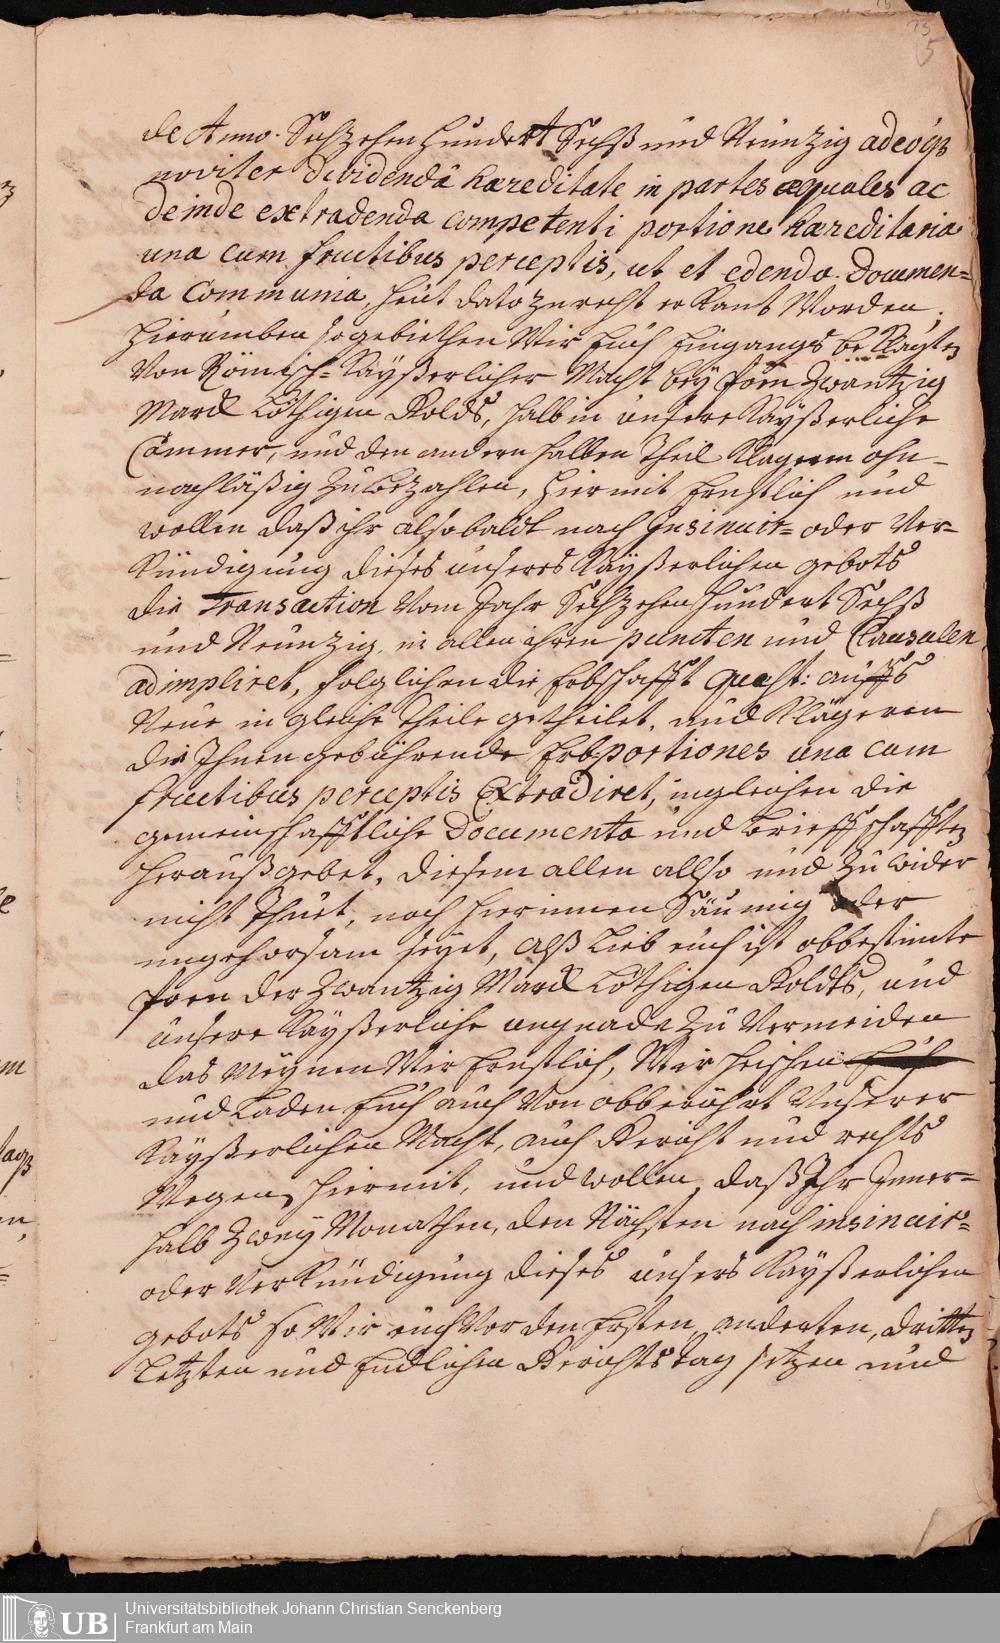 75
5
de Anno. Sechzehen hundert Sechß und Neunzig adeoqз
noviter dividendâ hæreditate in partes æquales ac
deinde extradenda competenti portione hæreditaria
una cum fructibus perceptis, ut et edenda Documen=
ta Communia, heut dato zu recht erkant Worden.
hierumben so gebiethen Wir Euch Eingangs beklagten
Von Römisch=Kayßerlicher Macht bey Poen Zwantzig
Marck Löthigen Golds, halb in unsere Kayßerliche
Cammer, und den andern halben Theil Klägeren ohn-
nachläßig zu bezahlen, hiermit Ernstlich und
wollen daß ihr alsobaldt nach Insinuir= oder Ver=
kündigung dieses unseres Kayßerlichen gebots
die Transaction Vom Jahr Sechzehen hundert Sechß
und Neunzig, in allen ihren puncten und Clausulen,
adimpliret, folglichen die Erbschafft quæst: auffs
Neue in gleiche Theile getheilet, und Klägeren
die Ihnen gebührende Erbportiones una cum
fructibus perceptis Extradiret, ingleichen die
gemeinschafftliche Documenta und brieffschafften
heraußgebet, diesem allen allso und zu wider
nicht Thuet, noch hierinnen Säumig oder
ungehorsam seyet, alß lieb euch ist obbestimte
Poen der Zwantzig Marck Löthigen Goldts, und
unsere Kayßerliche ungnade zu Vermeiden
das Meynen Wir Ernstlich, Wir heischen
und Laden Euch auch Von obberührt Unserer
Kayßerlichen Macht, auch Gericht und rechts
Wegen, hiermit, und wollen, daß Ihr Inner=
halb Zwey Monathen, den Nächsten nach insinuir=
oder Verkündigung dieses unsers Kayßerlichen
gebots so Wir euch Vor den Ersten, anderten, dritten
Letzten und Endlichen Gerichts tag setzen und
UB
Universitätsbibliothek Johann Christian Senckenberg
Frankfurt am Main